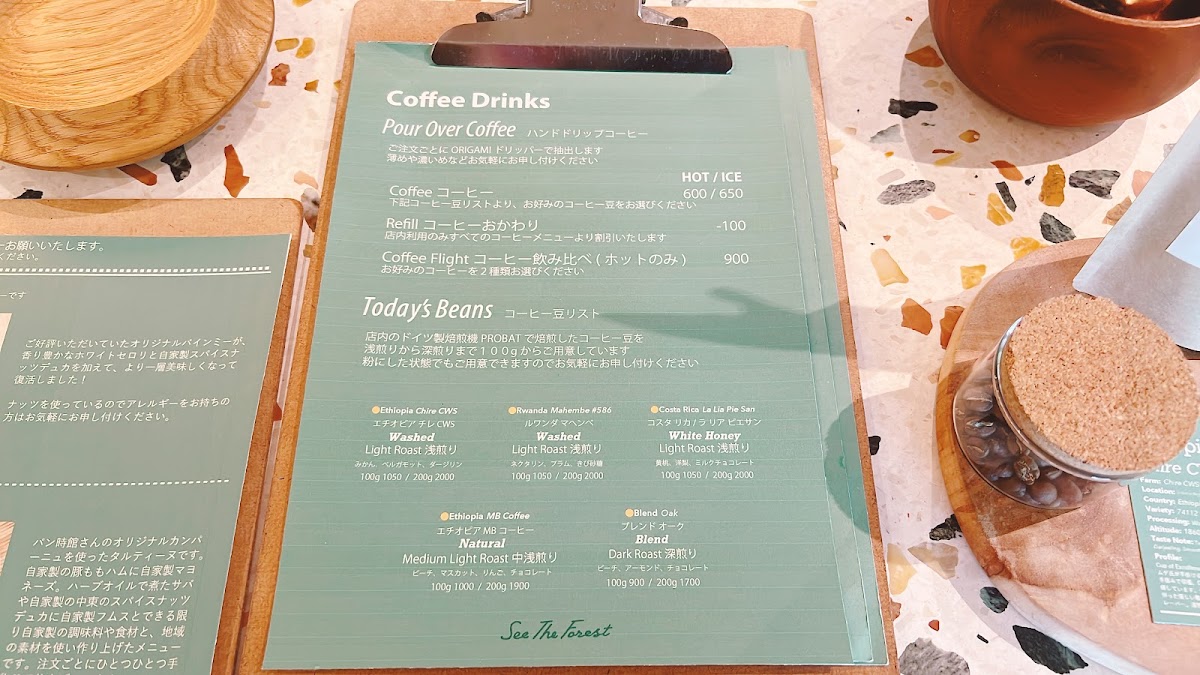 Coffee Drinks
Pour Over Coffee ハンドドリップコーヒー
ご注文ごとに ORIGAMI ドリッパーで抽出します
薄めや濃いめなどお気軽にお申し付けください
HOT / ICE
Coffee コーヒー 600 / 650
下記コーヒー豆リストより、お好みのコーヒー豆をお選びください
Refill コーヒーおかわり -100
店内利用のみすべてのコーヒーメニューより割引いたします
Coffee Flight コーヒー飲み比べ ( ホットのみ ) 900
お好みのコーヒーを２種類お選びください
Today's Beans コーヒー豆リスト
店内のドイツ製焙煎機 PROBAT で焙煎したコーヒー豆を
浅煎りから深煎りまで１００gからご用意しています
粉にした状態でもご用意できますのでお気軽にお申し付けください
Ethiopia Chire CWS
エチオピア チレ CWS
Washed
Light Roast 浅煎り
みかん、ベルガモット、ダージリン
100g 1050 / 200g 2000
Rwanda Mahembe #586
ルワンダ マヘンベ
Washed
Light Roast 浅煎り
ネクタリン、プラム、きび砂糖
100g 1050 / 200g 2000
Costa Rica La Lia Pie San
コスタ リカ / ラ リア ピエサン
White Honey
Light Roast 浅煎り
黄桃、洋梨、ミルクチョコレート
100g 1050 / 200g 2000
Ethiopia MB Coffee
エチオピア MB コーヒー
Natural
Medium Light Roast 中浅煎り
ピーチ、マスカット、りんご、チョコレート
100g 1000 / 200g 1900
Blend Oak
ブレンド オーク
Blend
Dark Roast 深煎り
ピーチ、アーモンド、チョコレート
100g 900 / 200g 1700
See The Forest
ーお願いいたします。
ください。
ーです
ご好評いただいていたオリジナルバインミーが、
香り豊かなホワイトセロリと自家製スパイスナ
ッツデュカを加えて、より一層美味しくなって
復活しました！
ナッツを使っているのでアレルギーをお持ちの
方はお気軽にお申し付けください。
パン時館さんのオリジナルカンパ
ーニュを使ったタルティーヌです。
自家製の豚ももハムに自家製マヨ
ネーズ。ハーブオイルで煮たサバ
や自家製の中東のスパイスナッツ
デュカに自家製フムスとできる限
り自家製の調味料や食材と、地域
の素材を使い作り上げたメニュー
です。注文ごとにひとつひとつ手
Farm: Chire CWS
Location:
Country:
Variety: 74112
Processing:
Altitude:
Taste Note:
Profile: